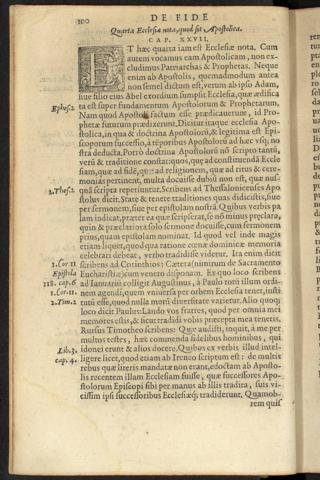 100
DE FIDE
Quarta Ecclesiæ nota, quod sit Apostolica.
CAP. XXVII.
ET hæc quarta iam est Ecclesiæ nota, Cum
autem vocamus eam Apostolicam, non ex-
cludimus Patriarchas & Prophetas. Neque
enim ab Apostolis, quemadmodum antea
non semel dictum est, verum ab ipso Adam,
siue filio eius Abel exordium sumpsit Ecclesia, quæ ædifica
Ephes. 2
ta est super fundamentum Apostolorum & Prophetarum,
Nam quod Apostoli factum esse prædicauerunt, id Pro-
phetæ futurum prædixerunt, Dicitur itaque ecclesia Apo-
stolica, in qua & doctrina Apostolorū, & legitima est Epi-
scoporum successio, à tēporibus Apostolorū ad hæc vsq; no
stra deducta. Porrò doctrina Apostolorū nō scripto tantū,
verū & traditione constat: quos, quę ad constituendā Eccle
siam, quæ ad fidē, quę ad religionem, quæ ad ritus & cere-
monias pertinent, multa docuisse dubiū non est, quæ nus-
2. Thes. 2
quā scripta reperiuntur. Scribens ad Thessalonicenses Apo
stolus dicit. State & tenete traditiones quas didicistis, siue
per sermonem, siue per epistolam nostrā. Quibus verbis pa
lam indicat, præter ea quæ scripserat, se nō minus pręclara,
quin & præclariora solo sermone docuisse, cum sermonem
prius, quam epistolam nominat. Id quod vel inde magis
etiam liquet, quod qua ratione cœnæ dominicæ memoria
celebrari debeat, verbo tradidisse videtur. Ita enim dicit
1. Cor. 11
scribens ad Corinthios: Cætera (nimirum de Sacramento
Epistola
Eucharistiæ) cum venero disponam. Ex quo loco scribens
118. cap. 6
ad Ianuariū colligit Augustinus, à Paulo totū illum ordi-
1. Cor. 11.
nem agendi, quem vniuersa per orbem Ecclesia tenet, insti
2. Tim. 2
tutū esse, quod nulla morū diuersitate varietur. Alio quoq;
loco dicit Paulus: Laudo vos fratres, quod per omnia mei
memores estis, & sicut tradidi vobis præcepta mea tenetis.
Rursus Timotheo scribens: Quæ audisti, inquit, à me per
multos testes, hæc commenda fidelibus hominibus, qui
Lib. 3.
idonei erunt & alios docere. Quibus ex verbis illud intel-
cap. 4.
ligere licet, quod etiam ab Ireneo scriptum est: de multis
rebus quæ literis mandatæ non erant, edoctam ab Aposto-
lis recentem illam Ecclesiam fuisse, quæ successores Apo-
stolorum Episcopi sibi per manus ab illis tradita, suis vi-
cissim ipsi successoribus Ecclesiæq; tradiderunt. Quamob-
rem quis